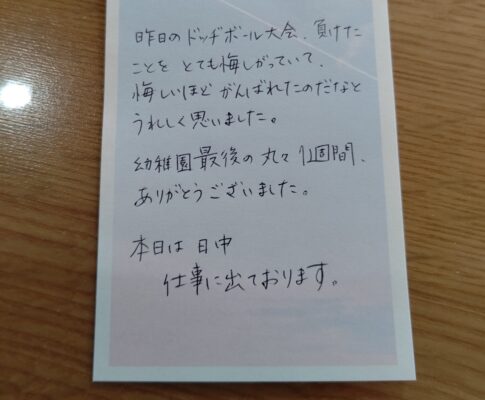 昨日のドッヂボール大会、負けた
ことを とても悔しがっていて、
悔しいほど がんばれたのだなと
うれしく思いました。
幼稚園最後の丸々1週間、
ありがとうございました。
本日は 日中
仕事に出ております。